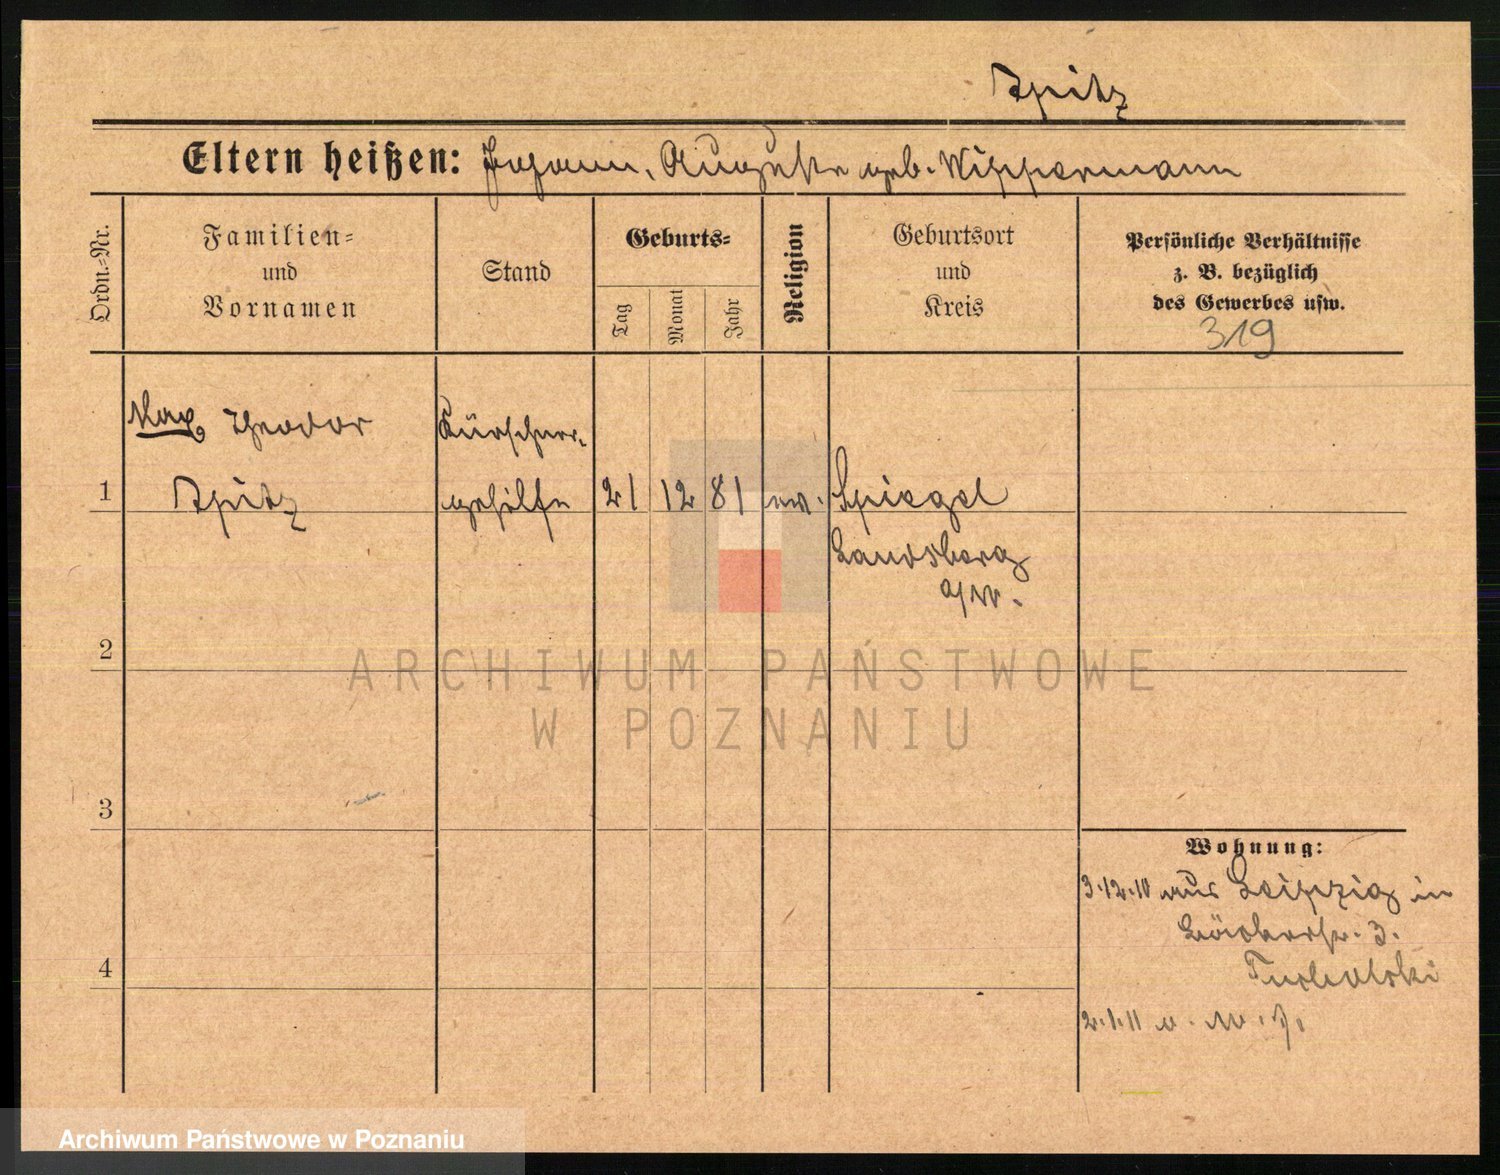 Spitz
Eltern heißen: Johann, Auguste geb. Wippermann
Ordn.-Nr.
Familien-
und
Vornamen
Stand
Geburts-
Tag
Monat
Jahr
Religion
Geburtsort
und
Kreis
Persönliche Verhältnisse
z. B. bezüglich
des Gewerbes usw.
319
Max, Theodor
Kürschner-
1 Spitz gehilfe 21 12 81 ev. Spiegel
Landsberg
a/W.
2
3
4
Wohnung:
3.12.10 aus Leipzig in
Bäckerstr. 3.
Tucholski
2.1.11
ARCHIWUM PAŃSTWOWE
W POZNANIU
Archiwum Państwowe w Poznaniu